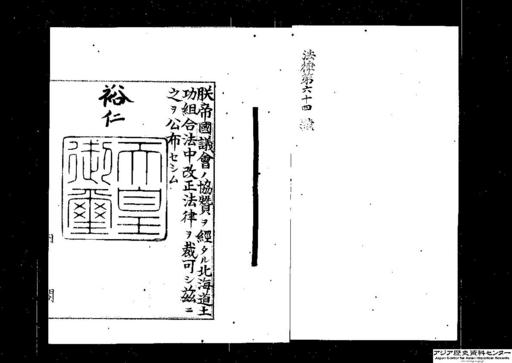 法律第六十四號
朕帝國議會ノ協贊ヲ經タル北海道土
功組合法中改正法律ヲ裁可シ茲ニ
之ヲ公布セシム
裕仁
天皇
御璽
内閣
アジア歴史資料センター
Japan Center for Asian Historical Records